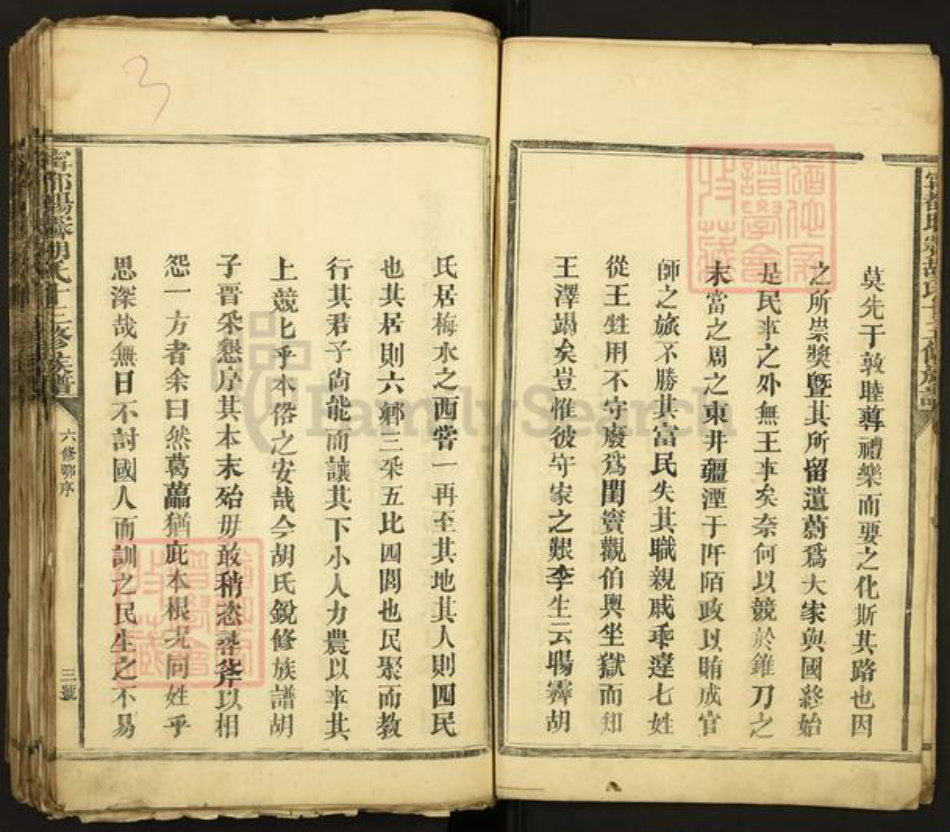 莫先于敦睦蕁禮樂而要之化斯其路也因
之所崇獎暨其所留遺蔚爲大家與國終始
是民事之外無王事矣奈何以競於錐刀之
末當之周之東井疆湮于阡陌政以賄成官
師之旅不勝其富民失其職親戚乖違七姓
從王甡用不守廢爲閨竇觀伯輿坐獄而知
王澤竭矣豈惟彼守家之艱李生云暘霽胡
氏居梅水之西嘗一再至其地其人則四民
也其居則六鄉三采五比四閭也民聚而教
行其君子尚能而讓其下小人力農以事其
上競匕乎本俗之安哉今胡氏銳修族譜胡
子晋采懇序其本末殆毋敢稍恣尋斧以相
怨一方者余曰然葛藟猶庇本根况同姓乎
思深哉無日不討國人而訓之民生之不易
寧都暘霽胡氏十三修族譜
六修鄂序
三號
3
FamilySearch